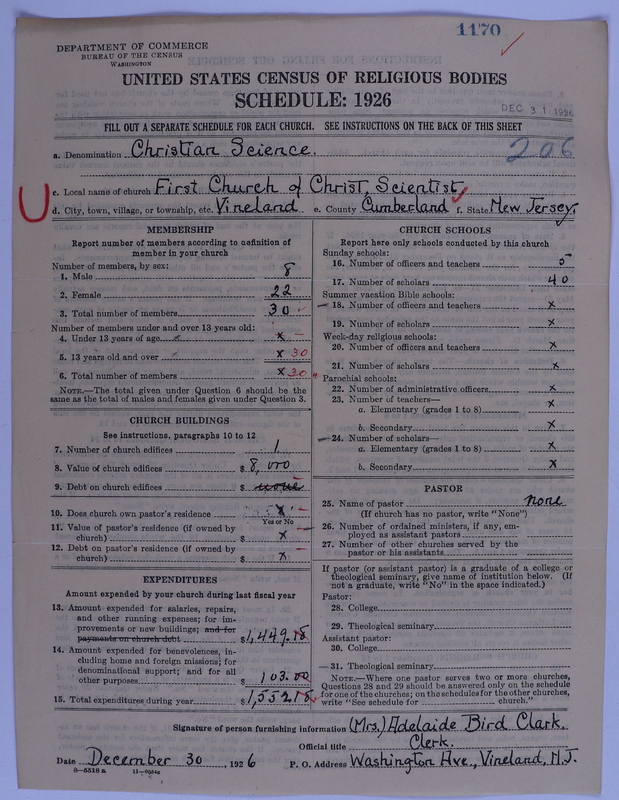 1170
DEPARTMENT OF COMMERCE
BUREAU OF THE CENSUS
WASHINGTON
UNITED STATES CENSUS OF RELIGIOUS BODIES
SCHEDULE: 1926
DEC 31 1926
FILL OUT A SEPARATE SCHEDULE FOR EACH CHURCH. SEE INSTRUCTIONS ON THE BACK OF THIS SHEET
a. Denomination Christian Science. 206
c. Local name of church First Church of Christ, Scientist,
d. City, town, village, or township, etc. Vineland e. County Cumberland f. State New Jersey.
MEMBERSHIP
Report number of members according to definition of
member in your church
Number of members, by sex:
1. Male 8
2. Female 22
3. Total number of members 30
Number of members under and over 13 years old:
4. Under 13 years of age x —
5. 13 years old and over x 30
6. Total number of members x 30
NOTE.—The total given under Question 6 should be the
same as the total of males and females given under Question 3.
CHURCH BUILDINGS
See instructions, paragraphs 10 to 12
7. Number of church edifices 1
8. Value of church edifices $ 8,000
9. Debt on church edifices $ none
10. Does church own pastor's residence x
Yes or No
11. Value of pastor's residence (if owned by
church) $ x
12. Debt on pastor's residence (if owned by
church) $ x
EXPENDITURES
Amount expended by your church during last fiscal year
13. Amount expended for salaries, repairs,
and other running expenses; for im-
provements or new buildings; and for
payments on church debt $1,449.18
14. Amount expended for benevolences, in-
cluding home and foreign missions; for
denominational support; and for all
other purposes $ 103.00
15. Total expenditures during year $1,552.18
CHURCH SCHOOLS
Report here only schools conducted by this church
Sunday schools:
16. Number of officers and teachers 5
17. Number of scholars 40
Summer vacation Bible schools:
18. Number of officers and teachers x
19. Number of scholars x
Week-day religious schools:
20. Number of officers and teachers x
21. Number of scholars x
Parochial schools:
22. Number of administrative officers x
23. Number of teachers—
a. Elementary (grades 1 to 8) x
b. Secondary x
24. Number of scholars—
a. Elementary (grades 1 to 8) x
b. Secondary x
PASTOR
25. Name of pastor none
(If church has no pastor, write "None")
26. Number of ordained ministers, if any, em-
ployed as assistant pastors
27. Number of other churches served by the
pastor or his assistants
If pastor (or assistant pastor) is a graduate of a college or
theological seminary, give name of institution below. (If
not a graduate, write "No" in the space indicated.)
Pastor:
28. College
29. Theological seminary
Assistant pastor:
30. College
31. Theological seminary
NOTE.—Where one pastor serves two or more churches,
Questions 28 and 29 should be answered only on the schedule
for one of the churches; on the schedules for the other churches,
write "See schedule for church."
Signature of person furnishing information (Mrs.) Adelaide Bird Clark.
Official title Clerk.
Date December 30, 1926 P. O. Address Washington Ave., Vineland, N.J.
8—5518 a